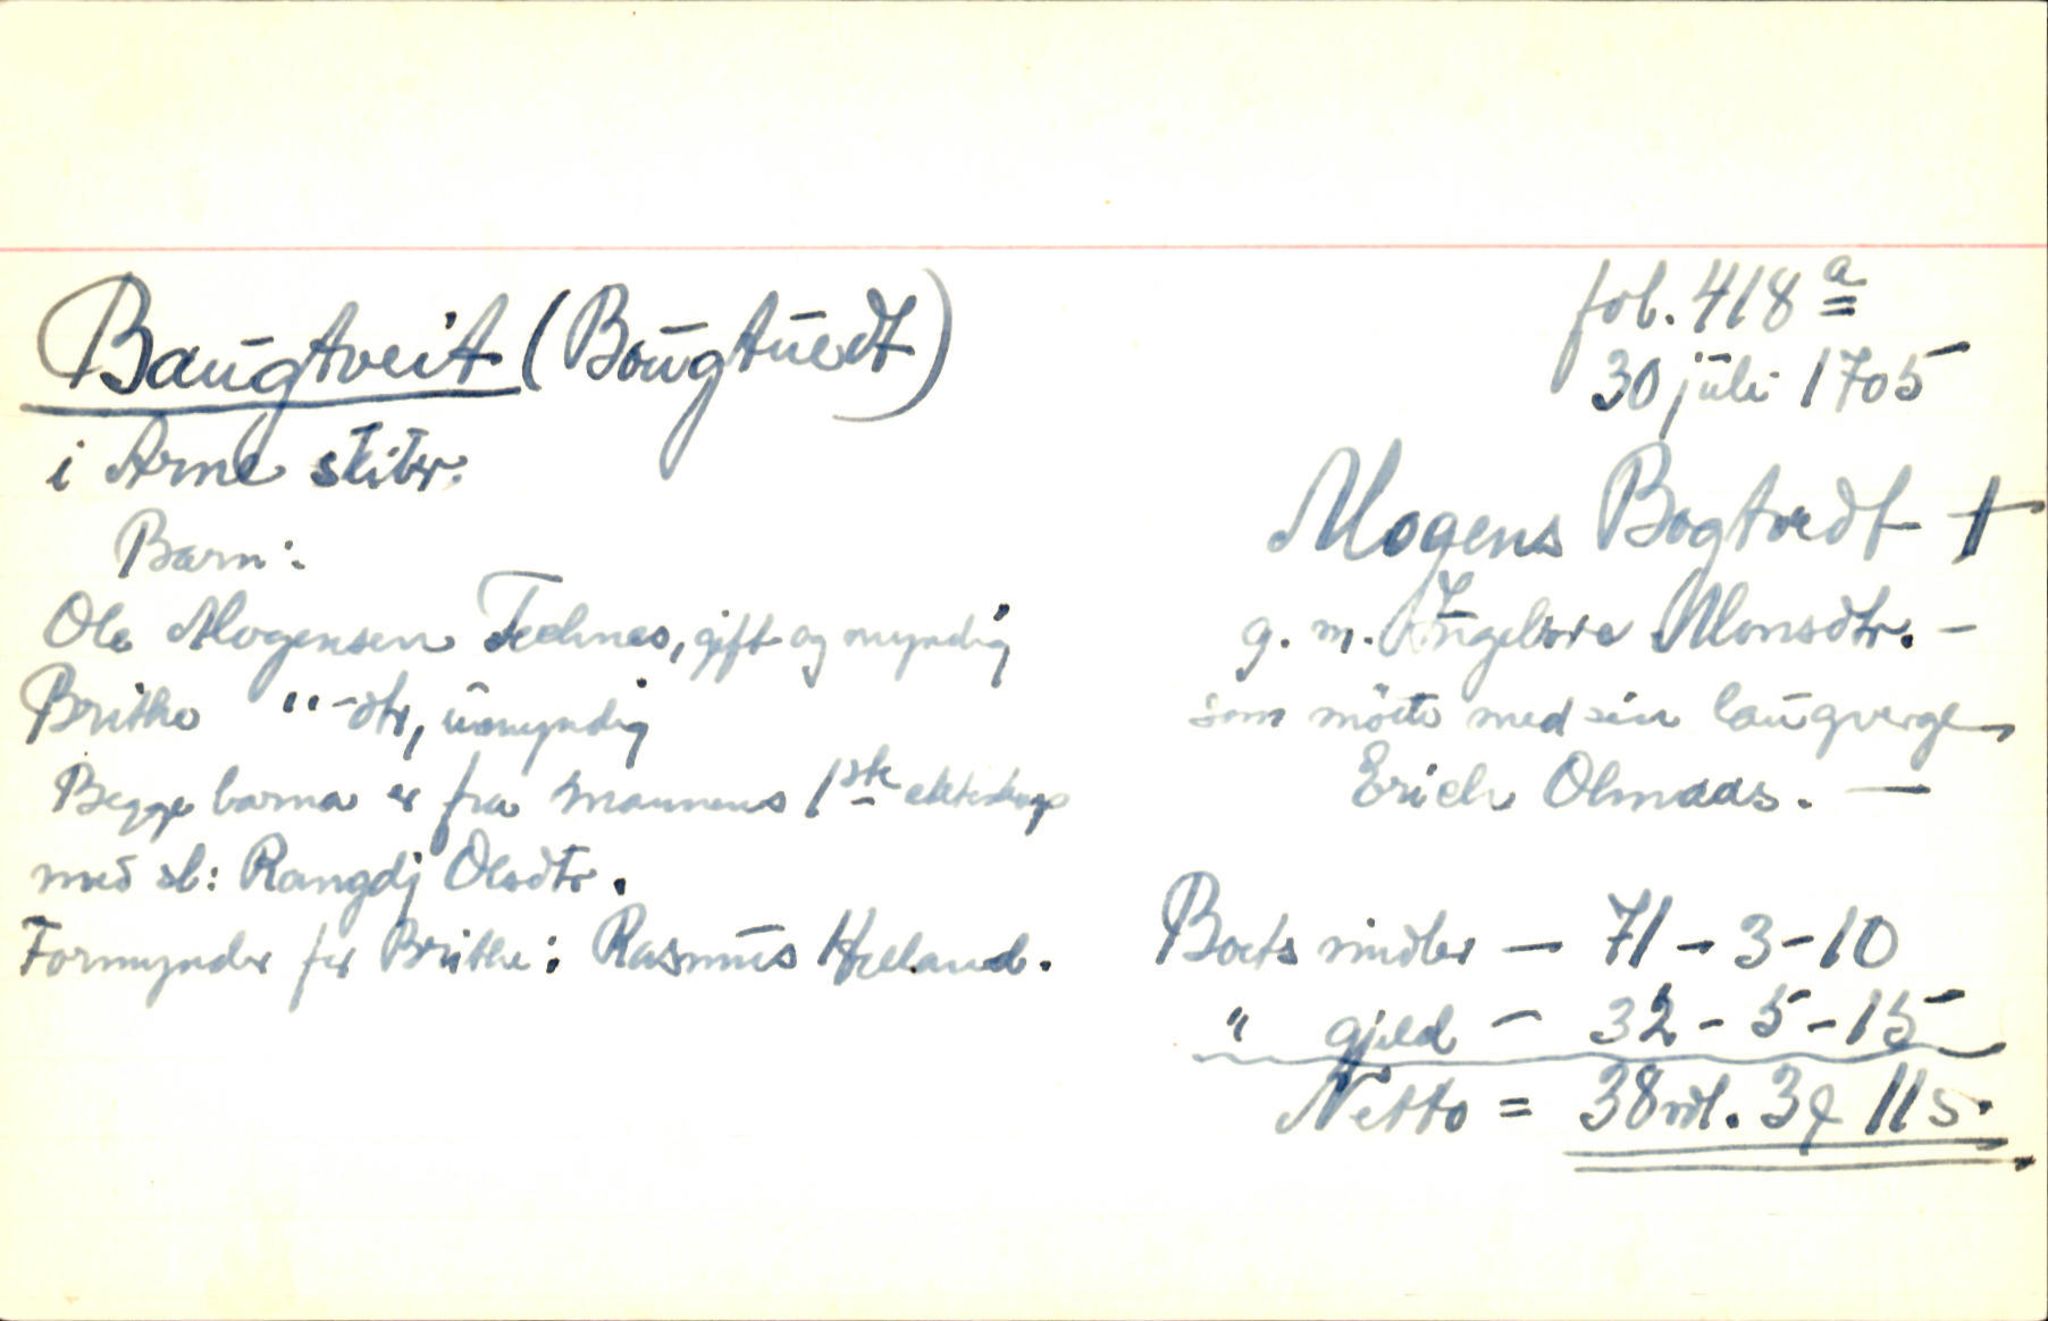 Baugtveit (Bougtuedt)
i Arne skibr.
Barn:
Ole Mogensen Tednes, gift og myndig
Brithe " -dtr, umyndig
Begge barna er fra mannens 1ste ekteskap
med sl: Rangdj Olsdtr.
Formynder for Brithe: Rasmus Helland.
fol. 418 a
30 juli 1705
Mogens Bogtvedt †
g. m. Ingebore Monsdtr. -
som møtte med sin laugverge
Erich Olmaas. —
Boets midler — 71 - 3 - 10
" gjeld - 32 - 5 - 15
Netto = 38 rdl. 3 ₰ 11 s.